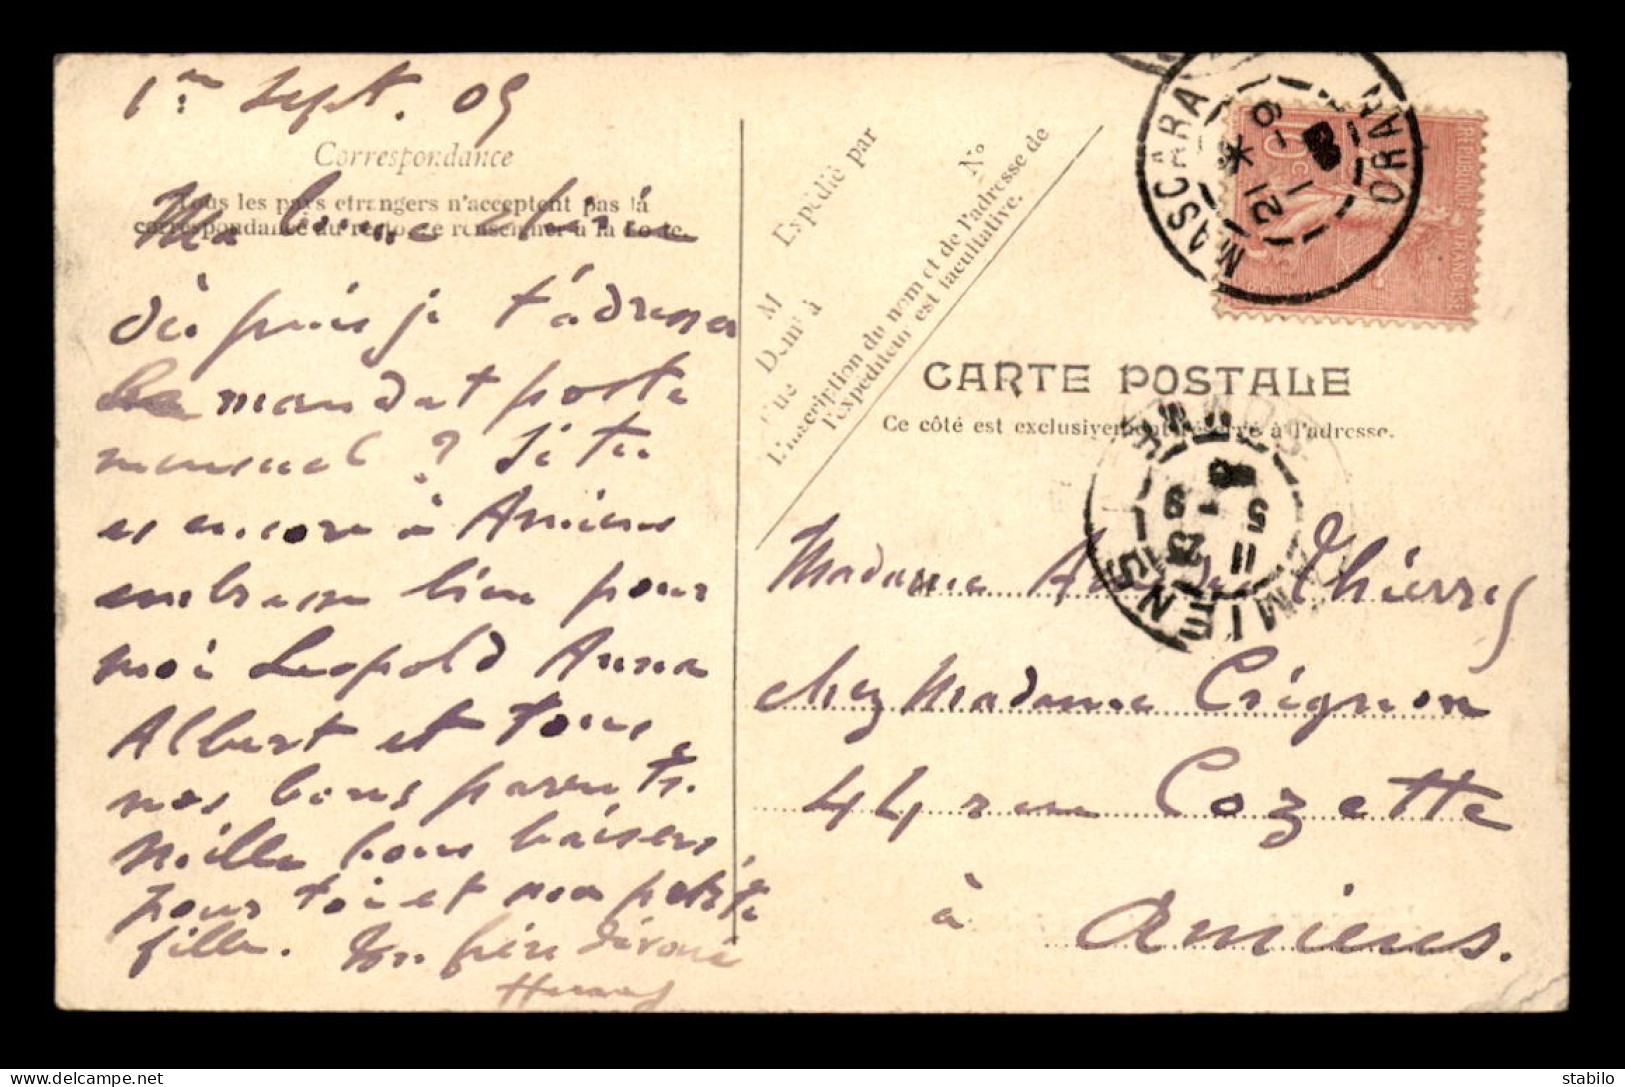 1er Sept. 05
Correspondance
Tous les pays etrangers n'acceptent pas la
correspondance au recto, se renseigner à la Poste.
Ma bonne
où puis je t'adresser
le mandat poste
mensuel ? Si tu
es encore à Amiens
embrasse bien pour
moi Leopold Anna
Albert et tous
nos bons parents.
Mille bons baisers
pour toi et ma petite
fille. Ton frère dévoué
Expédié par
M
Demt à
Rue
N°
L'inscription du nom et de l'adresse de
l'expéditeur est facultative.
MASCARA
ORAN
21
1-9
10c
REPUBLIQUE FRANÇAISE
CARTE POSTALE
Ce côté est exclusivement réservé à l'adresse.
AMIENS
SOMME
11
5-9
Madame Thierry
chez Madame Crignon
44 rue Cozette
à
Amiens.
stabilo